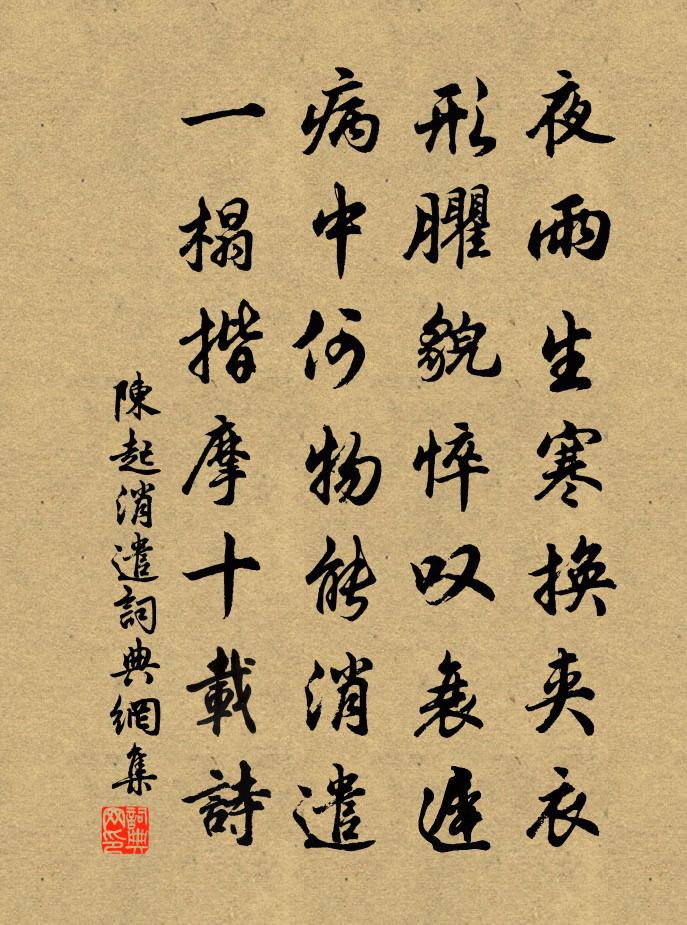 夜雨生寒換夾衣
形臞貌悴叹衰遲
病中何物能消遣
一榻揩摩十載詩
陳起消遣詞典網集
詞典網印